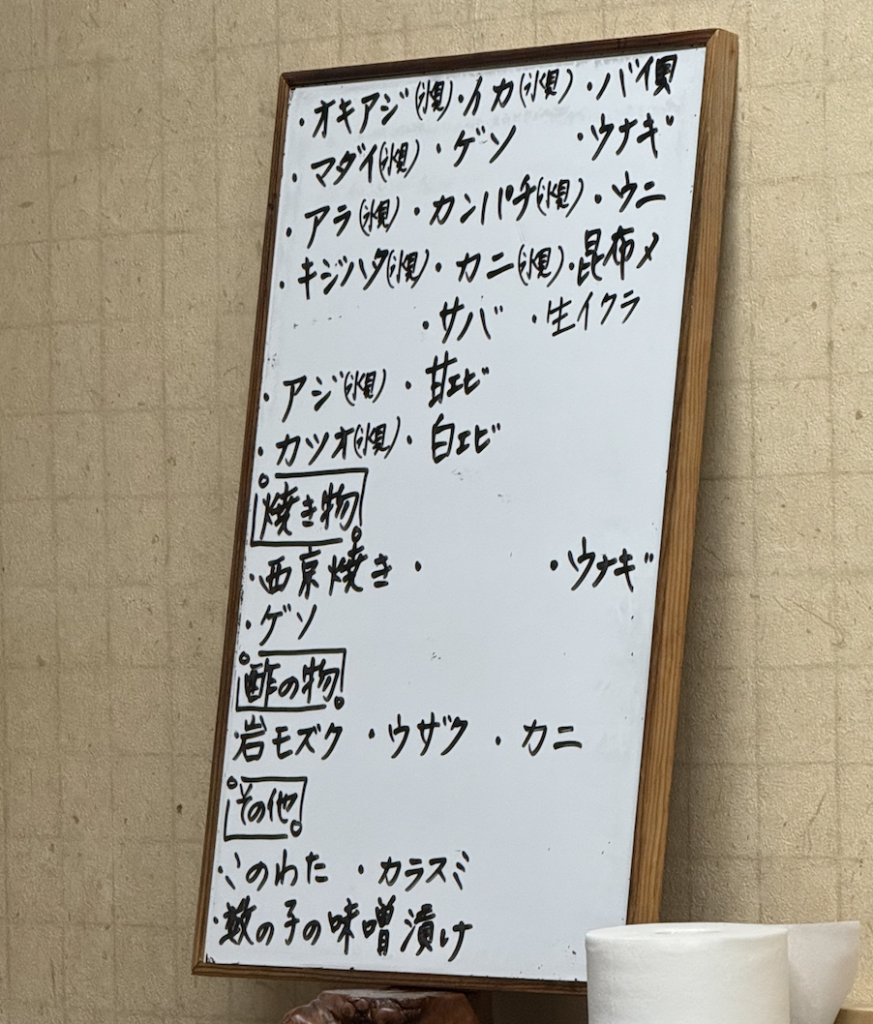 ・オキアジ(氷見)・イカ(氷見)・バイ貝
・マダイ(氷見)・ゲソ ・ウナギ
・アラ(氷見)・カンパチ(氷見)・ウニ
・キジハタ(氷見)・カニ(氷見)・昆布〆
・サバ ・生イクラ
・アジ(氷見)・甘エビ
・カツオ(氷見)・白エビ
焼き物
・西京焼き・ ・ウナギ
・ゲソ
酢の物
・岩モズク・ウザク・カニ
その他
・このわた・カラスミ
・数の子の味噌漬け